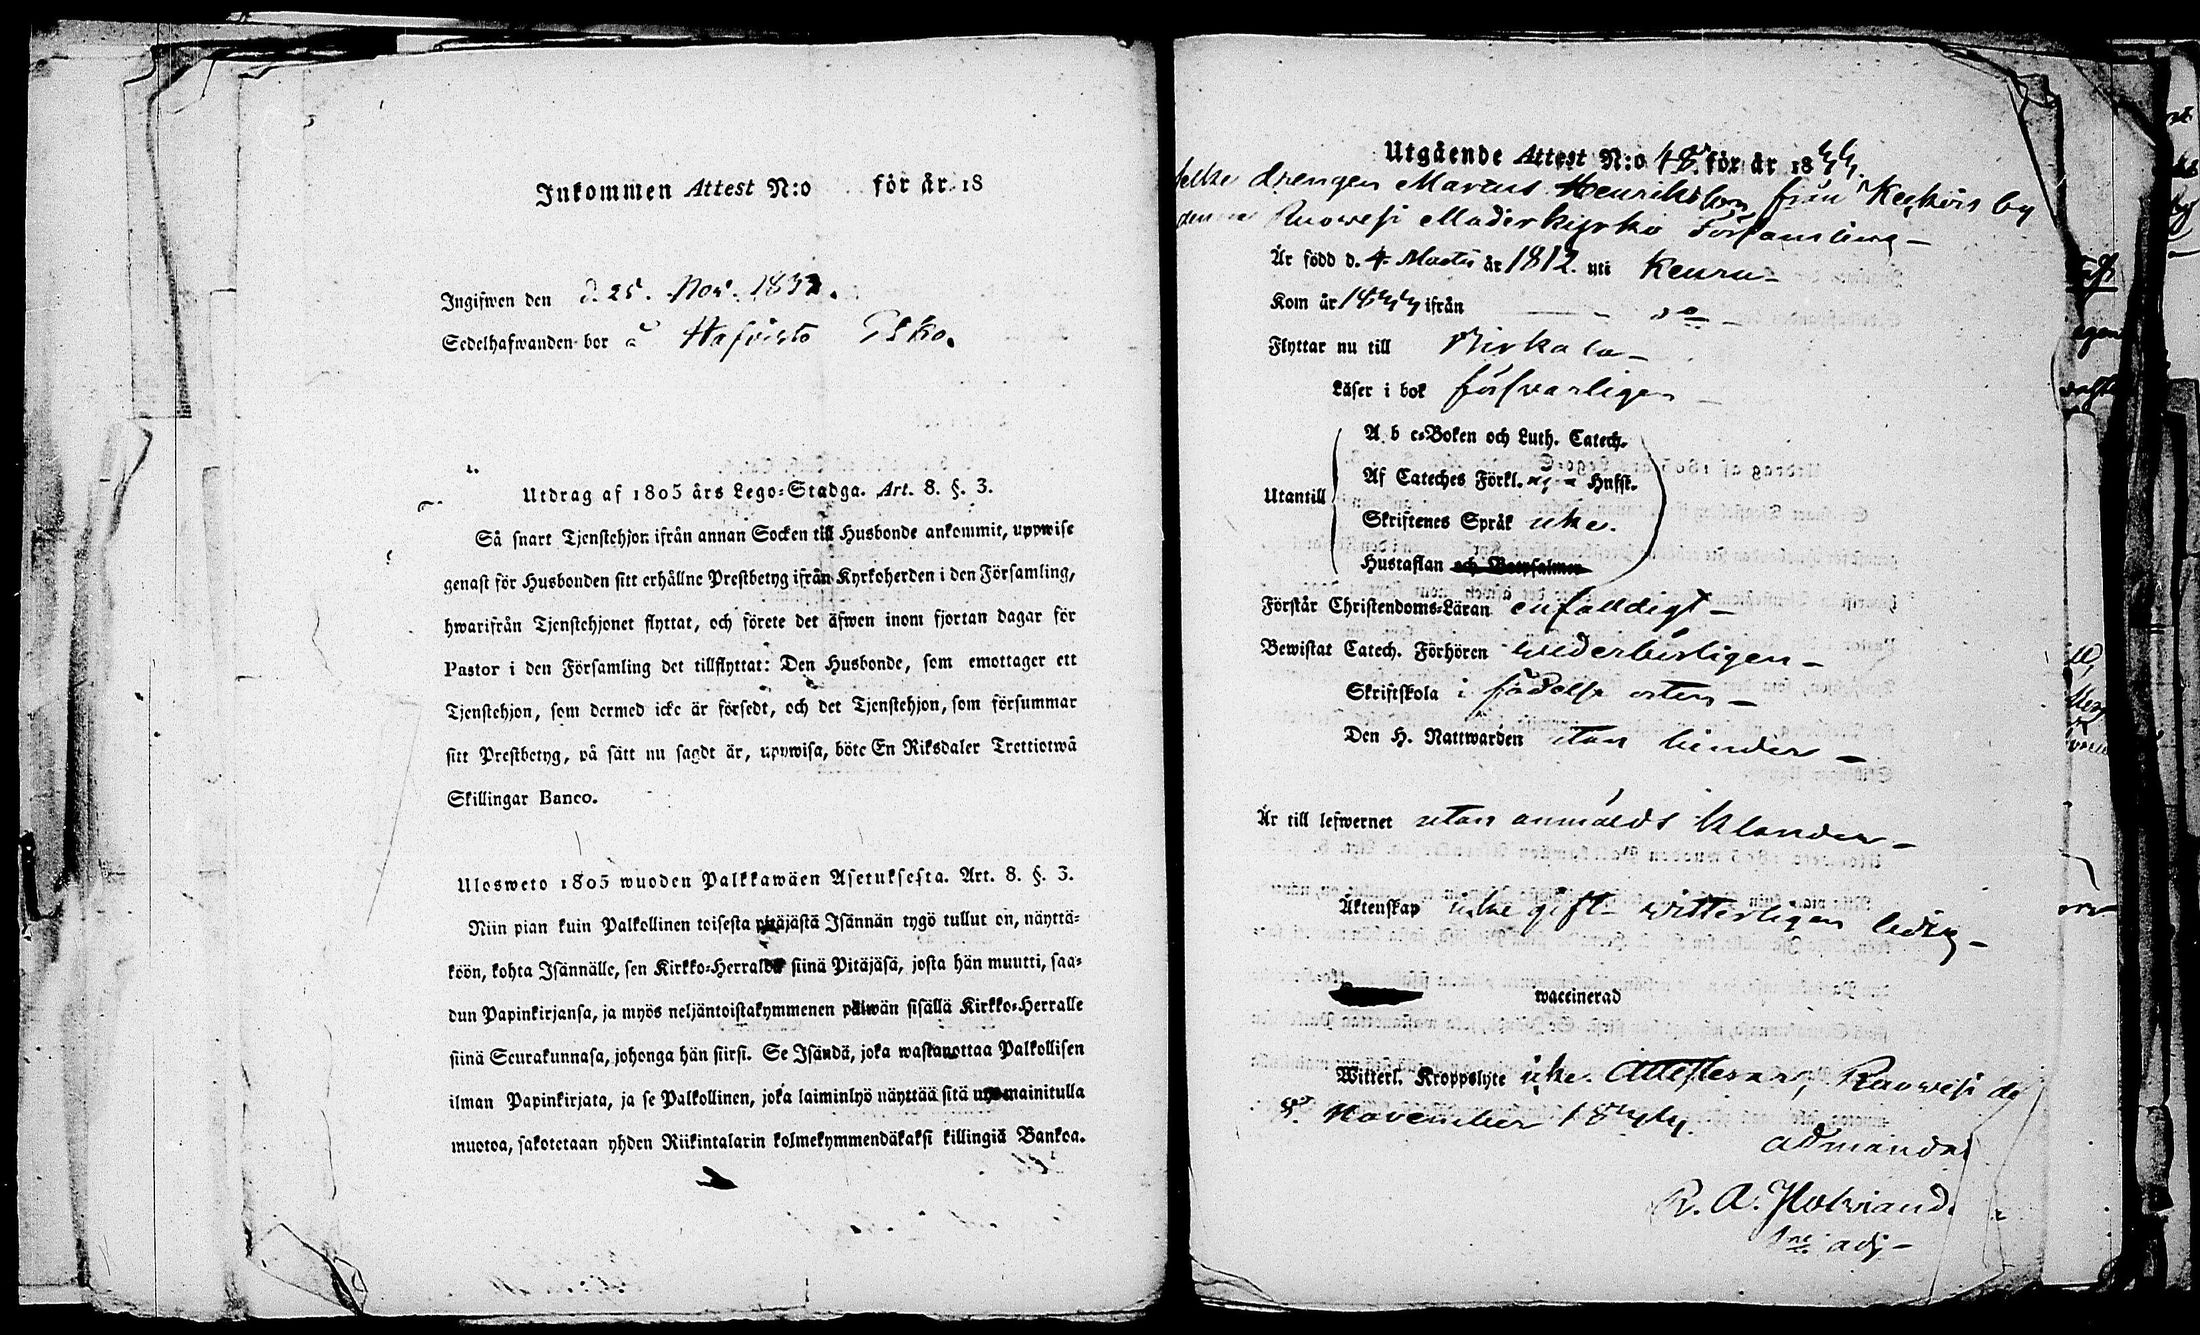 Inkommen Attest N:o för år 18
Ingifwen den d. 25. Nov. 183
Sedelhafwanden bor å
Utdrag af 1805 års Lego-Stadga. Art. 8. §. 3.
Så snart Tjenstehjon ifrån annan Socken till Husbonde ankommit, uppwise
genast för Husbonden sitt erhållne Prestbetyg ifrån Kyrkoherden i den Församling,
hwarifrån Tjenstehjonet flyttat, och förete det äfwen inom fjortan dagar för
Pastor i den Församling det tillflyttat: Den Husbonde, som emottager ett
Tjenstehjon, som dermed icke är försedt, och det Tjenstehjon, som försummar
sitt Prestbetyg, på sätt nu sagdt är, uppwisa, böte En Riksdaler Trettiotwå
Skillingar Banco.
Ulosweto 1805 wuoden Palkkawäen Asetuksesta. Art. 8. §. 3.
Niin pian kuin Palkollinen toisesta pitäjästä Isännän tygö tullut on, näyttä-
köön, kohta Isännälle, sen Kirkko-Herralda siinä Pitäjäsä, josta hän muutti, saa-
dun Papinkirjansa, ja myös neljäntoistakymmenen päiwän sisällä Kirkko-Herralle
siinä Seurakunnasa, johonga hän siirsi. Se Isändä, joka wastanottaa Palkollisen
ilman Papinkirjata, ja se Palkollinen, joka laiminlyö näyttää sitä mainitulla
muotoa, sakotetaan yhden Riikintalarin kolmekymmendäkaksi killingiä Bankoa.
Utgående Attest N:o för år 1844.
drengen Henriksson från Keskois by
Ruowesi Moderkyrko Församling
Är född d. 4 Martii år 1812. uti Keuru
Kom år 1844 ifrån do
Flyttar nu till Birkala
Läser i bok försvarligen
A b c-Boken och Luth. Catech.
Af Cateches Förkl. Husst.
Utantill
Skriftenes Språk icke.
Hustaflan och Botpsalmer
Förstår Christendoms-Läran enfaldigt
Bewistat Catech. Förhören wederbörligen
Skriftskola i födelse orten
Den H. Nattwarden utan hinder
Är till lefwernet utan anmäldt klander
Äktenskap icke gift witterligen ledig
waccinerad
Witterl. Kroppslyte icke. Attesterar, Ruowesi d.
8 November 1844.
R. A.
adj